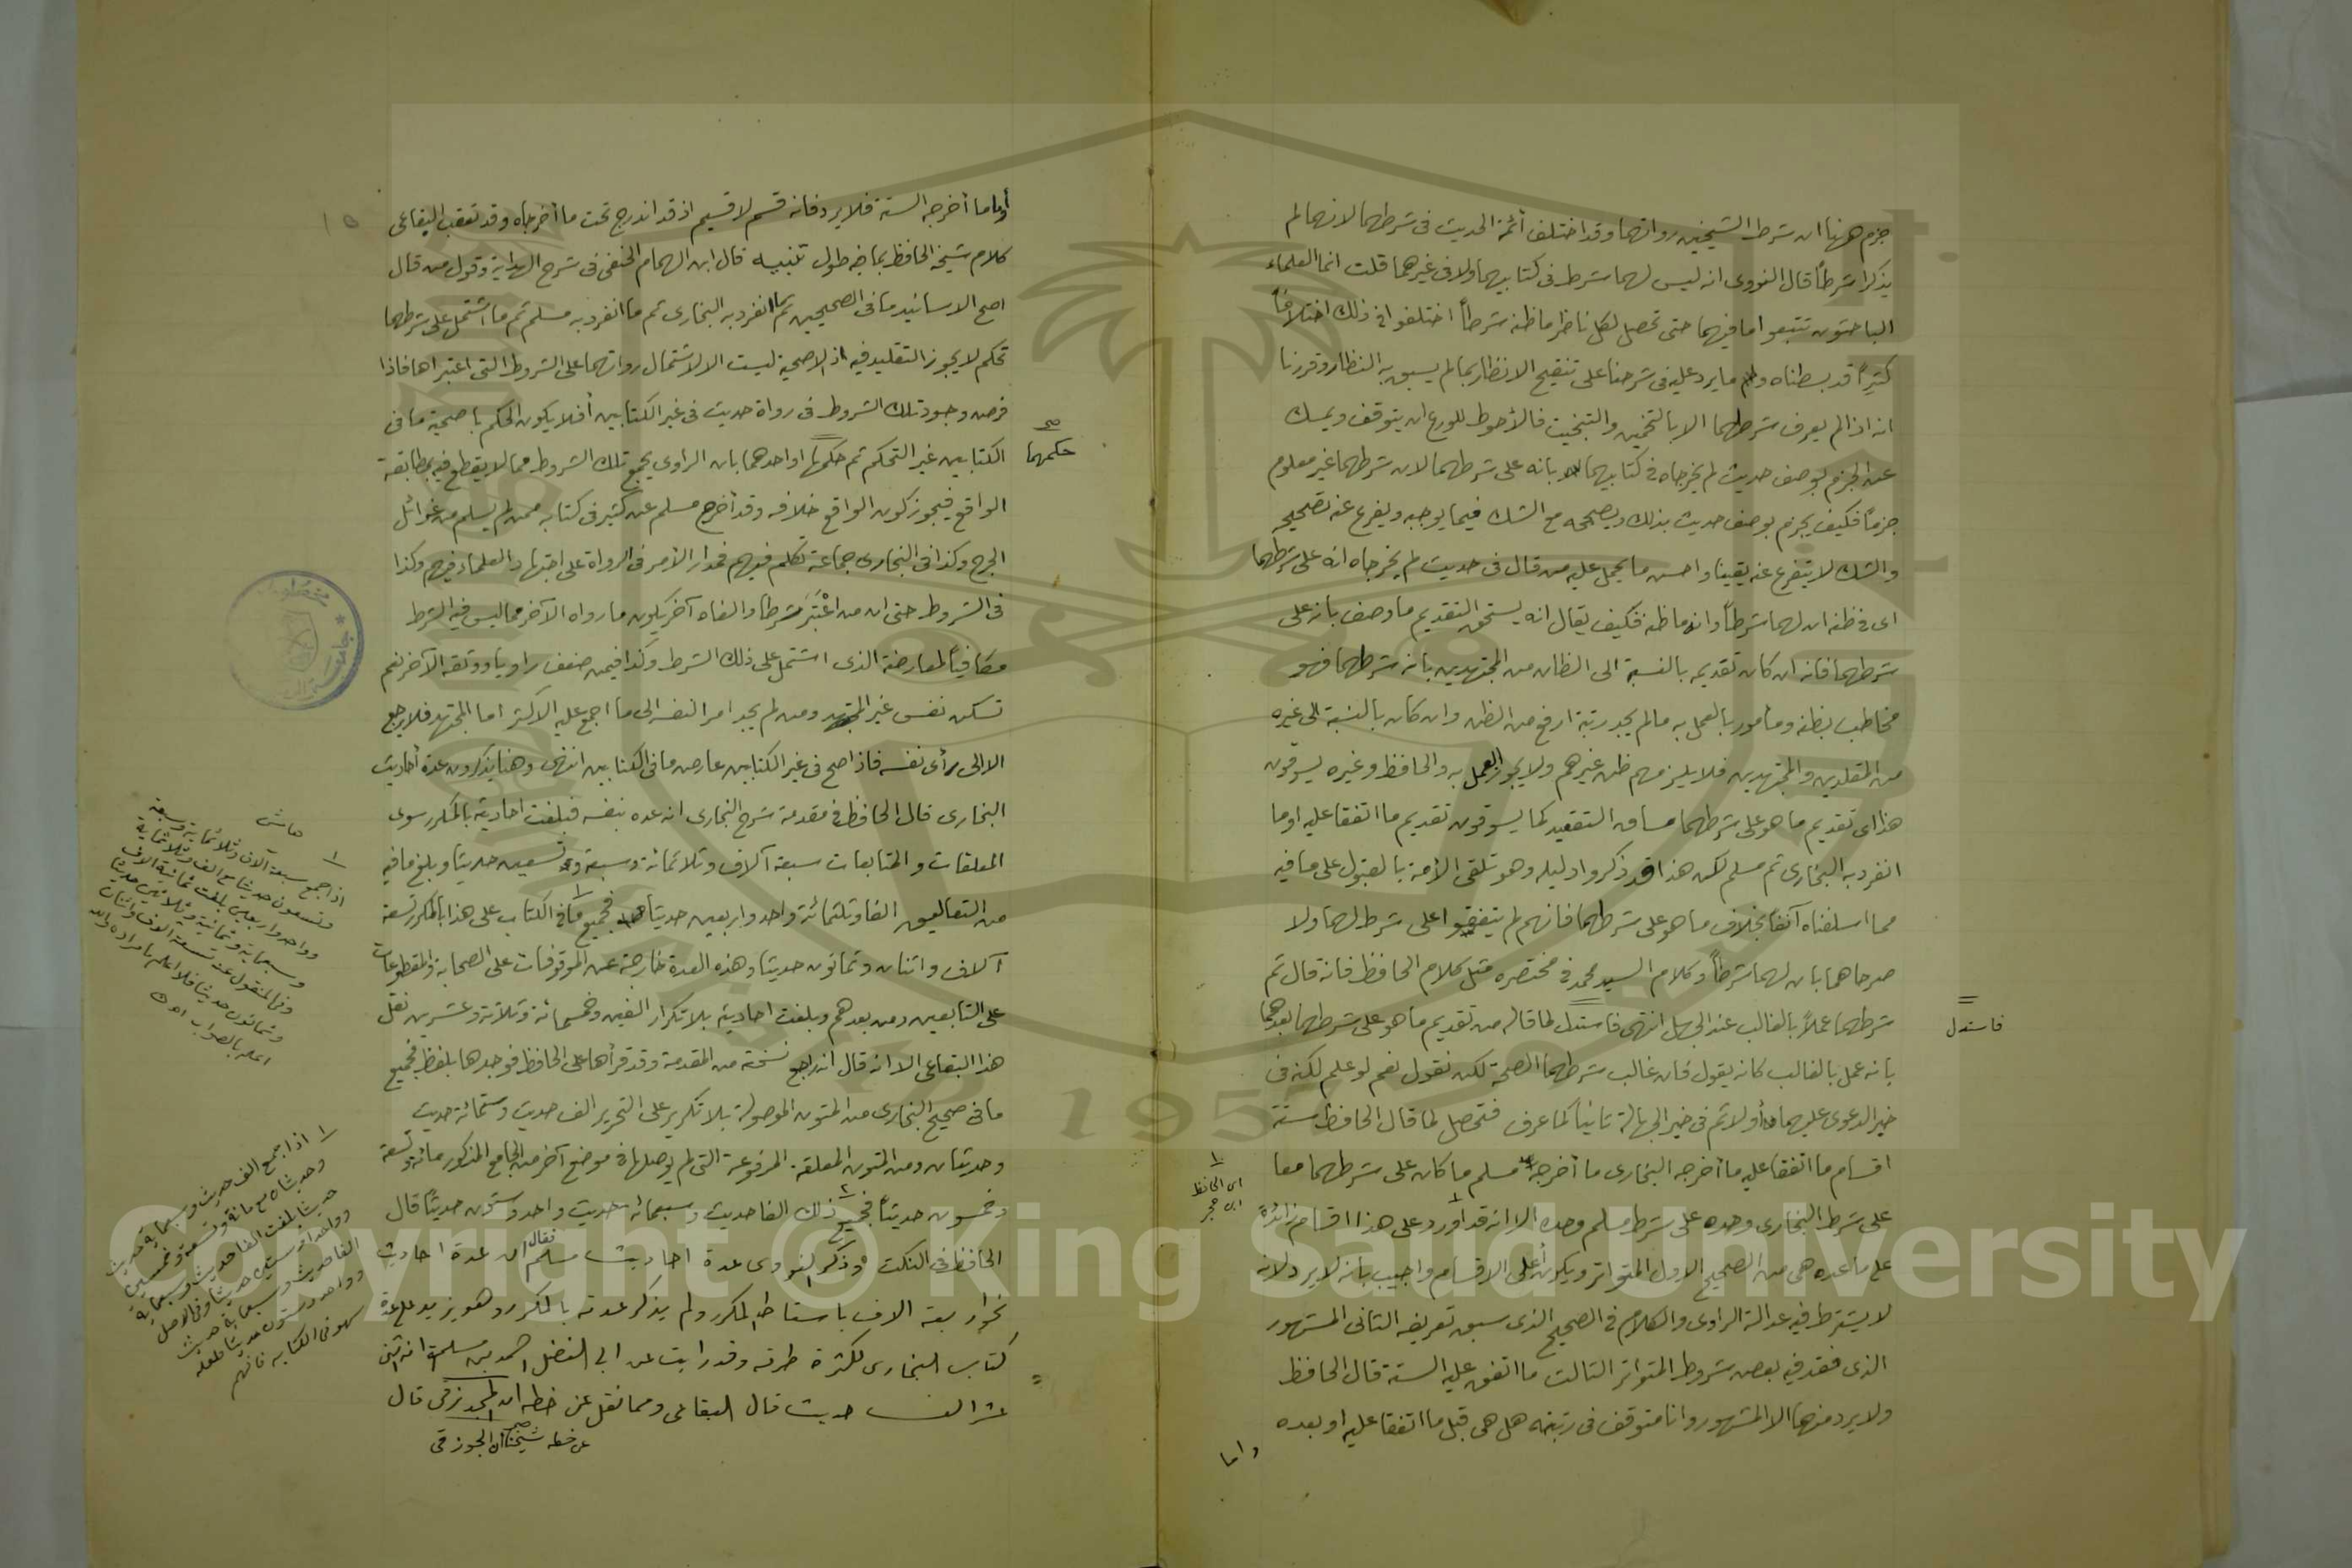 جزم ههنا ان شرط الشيخين رواتهما وقد اختلف أئمة الحديث فى شرطهما لانهما لم
يذكرا شرطاً قال النووى انه ليس لهما شرط فى كتابيهما ولا فى غيرهما قلت انما العلماء
الباحثون تتبعوا ما فيهما حتى تحصل لكل ناظر ما ظنه شرطاً اختلفوا فى ذلك اختلافاً
كثيراً قد بسطناه وما يرد عليه فى شرحنا على تنقيح الانظار بما لم يسبق به النظار وقررنا
انه اذا لم يعرف شرطهما الا بالتخمين والتبخيت فالأحوط للورع ان يتوقف ويمسك
عن الجزم بوصف حديث لم يخرجاه فى كتابيهما بانه على شرطهما لان شرطهما غير معلوم
جزماً فكيف يجزم بوصف حديث بذلك ويصححه مع الشك فيما يوجبه ويفرع عنه تصحيحه
والشك لا يتفرع عنه يقينا واحسن ما يحمل عليه من قال فى حديث لم يخرجاه انه على شرطهما
اى فى ظنه ان لهما شرطاً وانه ما ظنه فكيف يقال انه يستحق التقديم ما وصف بانه على
شرطهما فانه ان كان تقديمه بالنسبة الى الظان من المجتهدين بانه شرطهما فهو
مخاطب بظنه ومأمور بالعمل به مالم يجد رتبة ارفع من الظن وان كان بالنسبة الى غيره
من المقلدين والمجتهدين فلا يلزمهم ظن غيرهم ولا يجوز العمل به والحافظ وغيره يسوقون
هذا اى تقديم ما هو على شرطهما مساق التقعيد كما يسوقون تقديم ما اتفقا عليه او ما
انفرد به البخارى ثم مسلم لكن هذا قد ذكروا دليله وهو تلقى الأمة بالقبول على ما فيه
مما اسلفناه آنفا بخلاف ما هو على شرطهما فانهم لم يتفقوا على شرط لهما ولا
صرحا هما بان لهما شرطاً وكلام السيد محمد فى مختصره مثل كلام الحافظ فانه قال ثم
شرطهما عملاً بالغالب عند الجهل انتهى فاستدل لما قاله من تقديم ما هو على شرطهما بعدهما
بانه عمل بالغالب كانه يقول لان غالب شرطهما الصحة لكن نقول نعم لو علم لكنه فى
خير الدعوى عليهما أولا ثم فى خير الجهالة ثانياً كما عرف فتحصل لما قال الحافظ ستة
اقسام ما اتفقا عليه ما أخرجه البخارى ما أخرجه مسلم ما كان على شرطهما معا
على شرط البخارى وحده على شرط مسلم وحده الا انه قد اورد على هذا اقسام زائدة
على ما عده هى من الصحيح الاول المتواتر ويكون أعلى الاقسام واجيب بانه لا يرد لانه
لا يشترط فيه عدالة الراوى والكلام فى الصحيح الذى سبق تعريفه الثانى المشهور
الذى فقد فيه بعض شروط المتواتر الثالث ما اتفق عليه الستة قال الحافظ
ولا يرد منهما الا المشهور وانا متوقف فى رتبته هل هى قبل ما اتفقا عليه او بعده
واما
فاستدل
١
اى الحافظ
ابن حجر
وأما ما أخرجه الستة فلا يرد فانه قسم لا قسيم اذ قد اندرج تحت ما أخرجاه وقد تعقب البقاعى
كلام شيخه الحافظ بما فيه طول تنبيه قال ابن الهمام الحنفى فى شرح الهداية وقول من قال
اصح الاسانيد ما فى الصحيحين ثم ما انفرد به البخارى ثم ما انفرد به مسلم ثم ما اشتمل على شرطهما
تحكم لا يجوز التقليد فيه اذ الاصحية ليست الا لاشتمال رواتهما على الشروط التى اعتبراها فاذا
فرض وجود تلك الشروط فى رواة حديث فى غير الكتابين أفلا يكون الحكم باصحية ما فى
الكتابين غير التحكم ثم حكمها او احدهما بان الراوى يجمع تلك الشروط مما لا يقطع فيه بمطابقة
الواقع فيجوز كون الواقع خلافه وقد أخرج مسلم عن كثير فى كتابه ممن لم يسلم من غوائل
الجرح وكذا فى البخارى جماعة تكلم فيهم فمدار الأمر فى الرواة على اجتهاد العلماء فيهم وكذا
فى الشروط حتى ان من اعْتَبَرَ شرطا والغاه آخر يكون ما رواه الآخر مما ليس فيه الشرط
مكافياً لمعارضة الذى اشتمل على ذلك الشرط وكذا فيمن ضعف راويا ووثقه الآخر نعم
تسكن نفس غير المجتهد ومن لم يجد امر النفسه الى ما اجمع عليه الاكثر اما المجتهد فلا يرجع
الا الى رأى نفسه فاذا صح فى غير الكتابين عارض ما فى الكتابين انتهى وهنا يذكرون عدة أحاديث
البخارى قال الحافظ فى مقدمة شرح البخارى انه عده بنفسه فبلغت احاديثه بالمكرر سوى
المعلقات والمتابعات سبعة آلاف وثلاثمائة وسبعة وتسعين حديثا وبلغ ما فيه
من التعاليق الفا وثلثمائة واحد واربعين حديثا فجميع ما فى الكتاب على هذا بالمكرر تسعة
آلاف واثنان وثمانون حديثا وهذه العدة خارجة عن الموقوفات على الصحابة والمقطوعات
على التابعين ومن بعدهم وبلغت احاديثه بلا تكرار الفين وخمسمائة وثلاثة وعشرين نقل
هذا البقاعى الا انه قال انه راجع نسخته من المقدمة وقد قرأها على الحافظ فوجدها بلفظ فجميع
ما فى صحيح البخارى من المتون الموصولة بلا تكرير على التحرير الف حديث وستمائة حديث
وحديثان ومن المتون المعلقة المرفوعة التى لم يوصلها فى موضع آخر من الجامع المذكور مائة وتسعة
وخمسون حديثاً فجميع ذلك الفا حديث وسبعمائة حديث واحد وستون حديثاً قال
الحافظ فى النكت وذكر النووى عدة احاديث مسلم فقال ان عدة احاديث
نحو اربعة الاف باسقاط المكرر ولم يذكر عدته بالمكرر وهو يزيد على عدة
كتاب البخارى لكثرة طرقه وقد رايت عن ابى الفضل احمد بن سلمة انه اثنى
عشر الف حديث قال البقاعى ومما نقل عن خطه ان الجوزقى قال
عن خطه شيخنا ان الجوزقى
صح
حكمهما
١ حاشى
اذا جمع سبعة آلاف وثلاثماية وسبعة
وتسعون حديثا مع الف وثلاثماية
وواحد واربعين بلغت ثمانية الاف
وسبعماية وثمانية وثلاثين حديثا
وفى المنقول عنه تسعة الاف واثنان
وثمانون حديثا فالله اعلم بالمراد والله
اعلم بالصواب اهـ
١ اذا جمع الف حديث وستماية حديث
وحديثان مع مائة وتسعة وخمسين
حديثا بلغت الفا حديث وسبعماية
وواحدا وستين حديثا وفى الاصل
الفا حديث وسبعماية حديث
وواحد وستون حديثا فلعله
سهو فى الكتابه فافهم
Copyright © King Saud University
1957